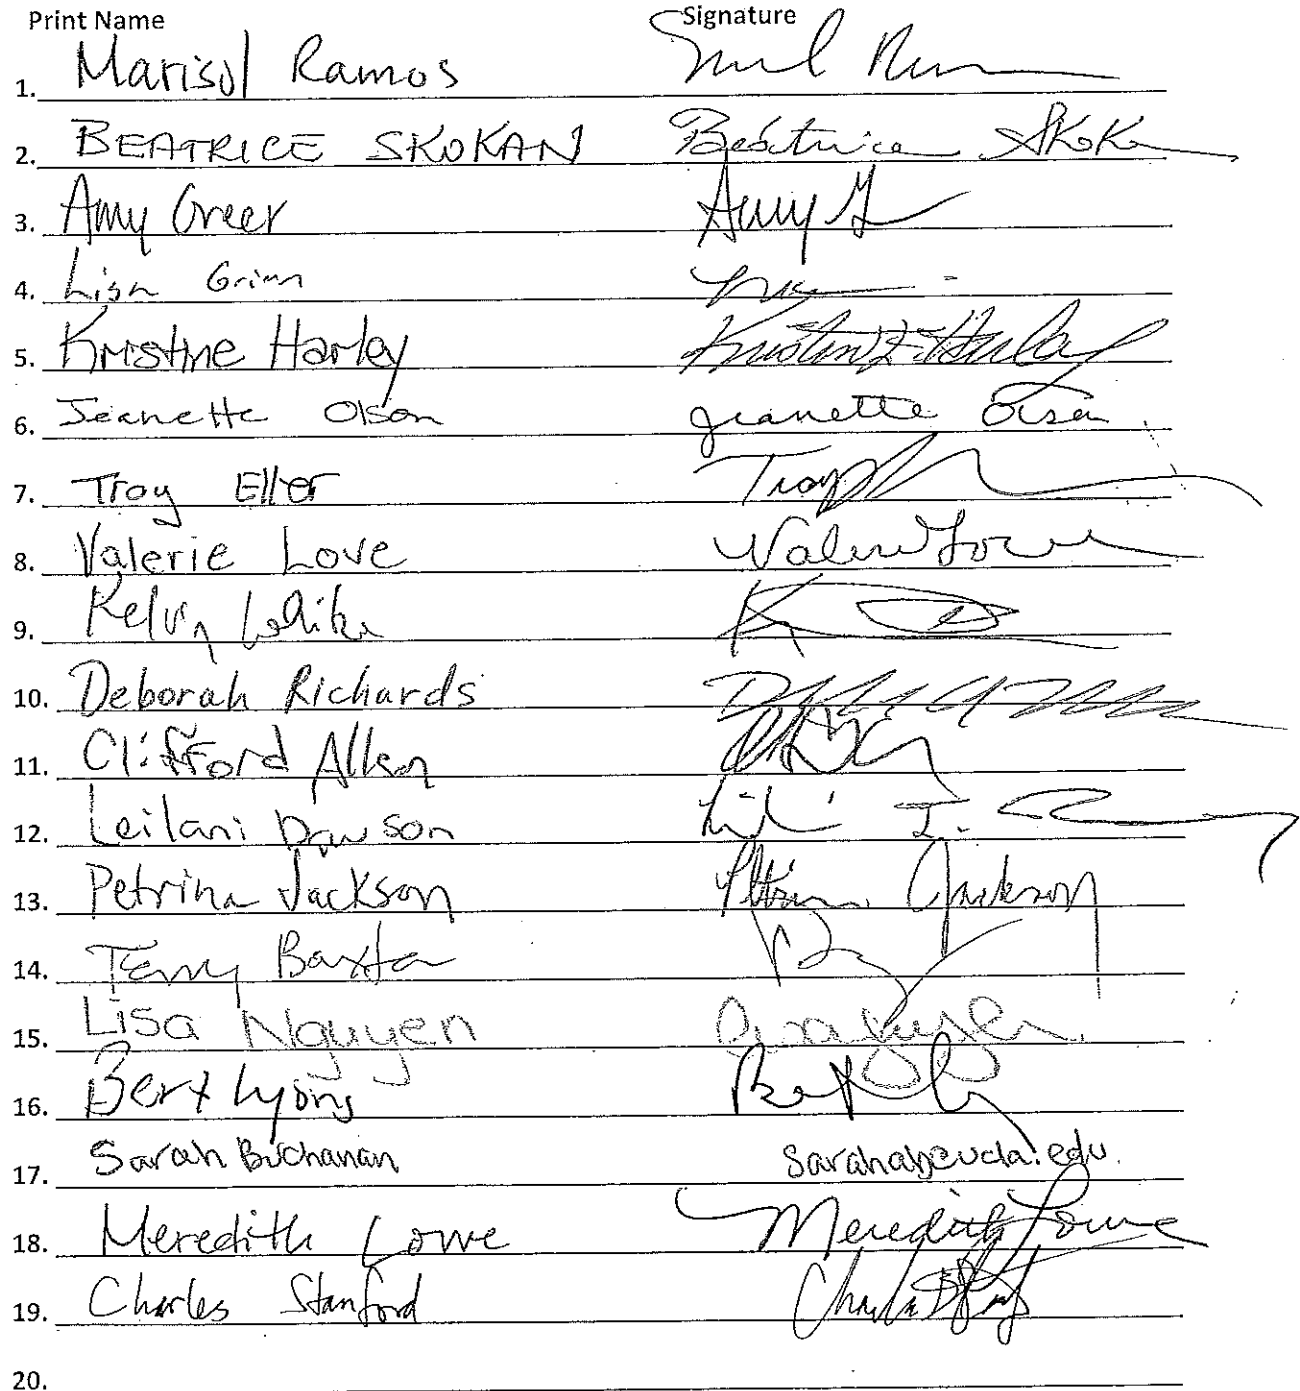 Print Name Signature
1. Marisol Ramos
2. BEATRICE SKOKAN Beatrice Skoka
3. Amy Greer Amy G
4. Lisa Grimm
5. Kristine Harley Kristin Harley
6. Jeanette Olson Jeanette Olson
7. Troy Eller Troy
8. Valerie Love Valerie Love
9. Kelvin White K
10. Deborah Richards
11. Clifford Allen
12. Leilani Dawson
13. Petrina Jackson Petrina Jackson
14. Terry Baxter
15. Lisa Nguyen Lisa Nguyen
16. Bert Lyons
17. Sarah Buchanan
18. Meredith Lowe Meredith Lowe
19. Charles Stanford
20.